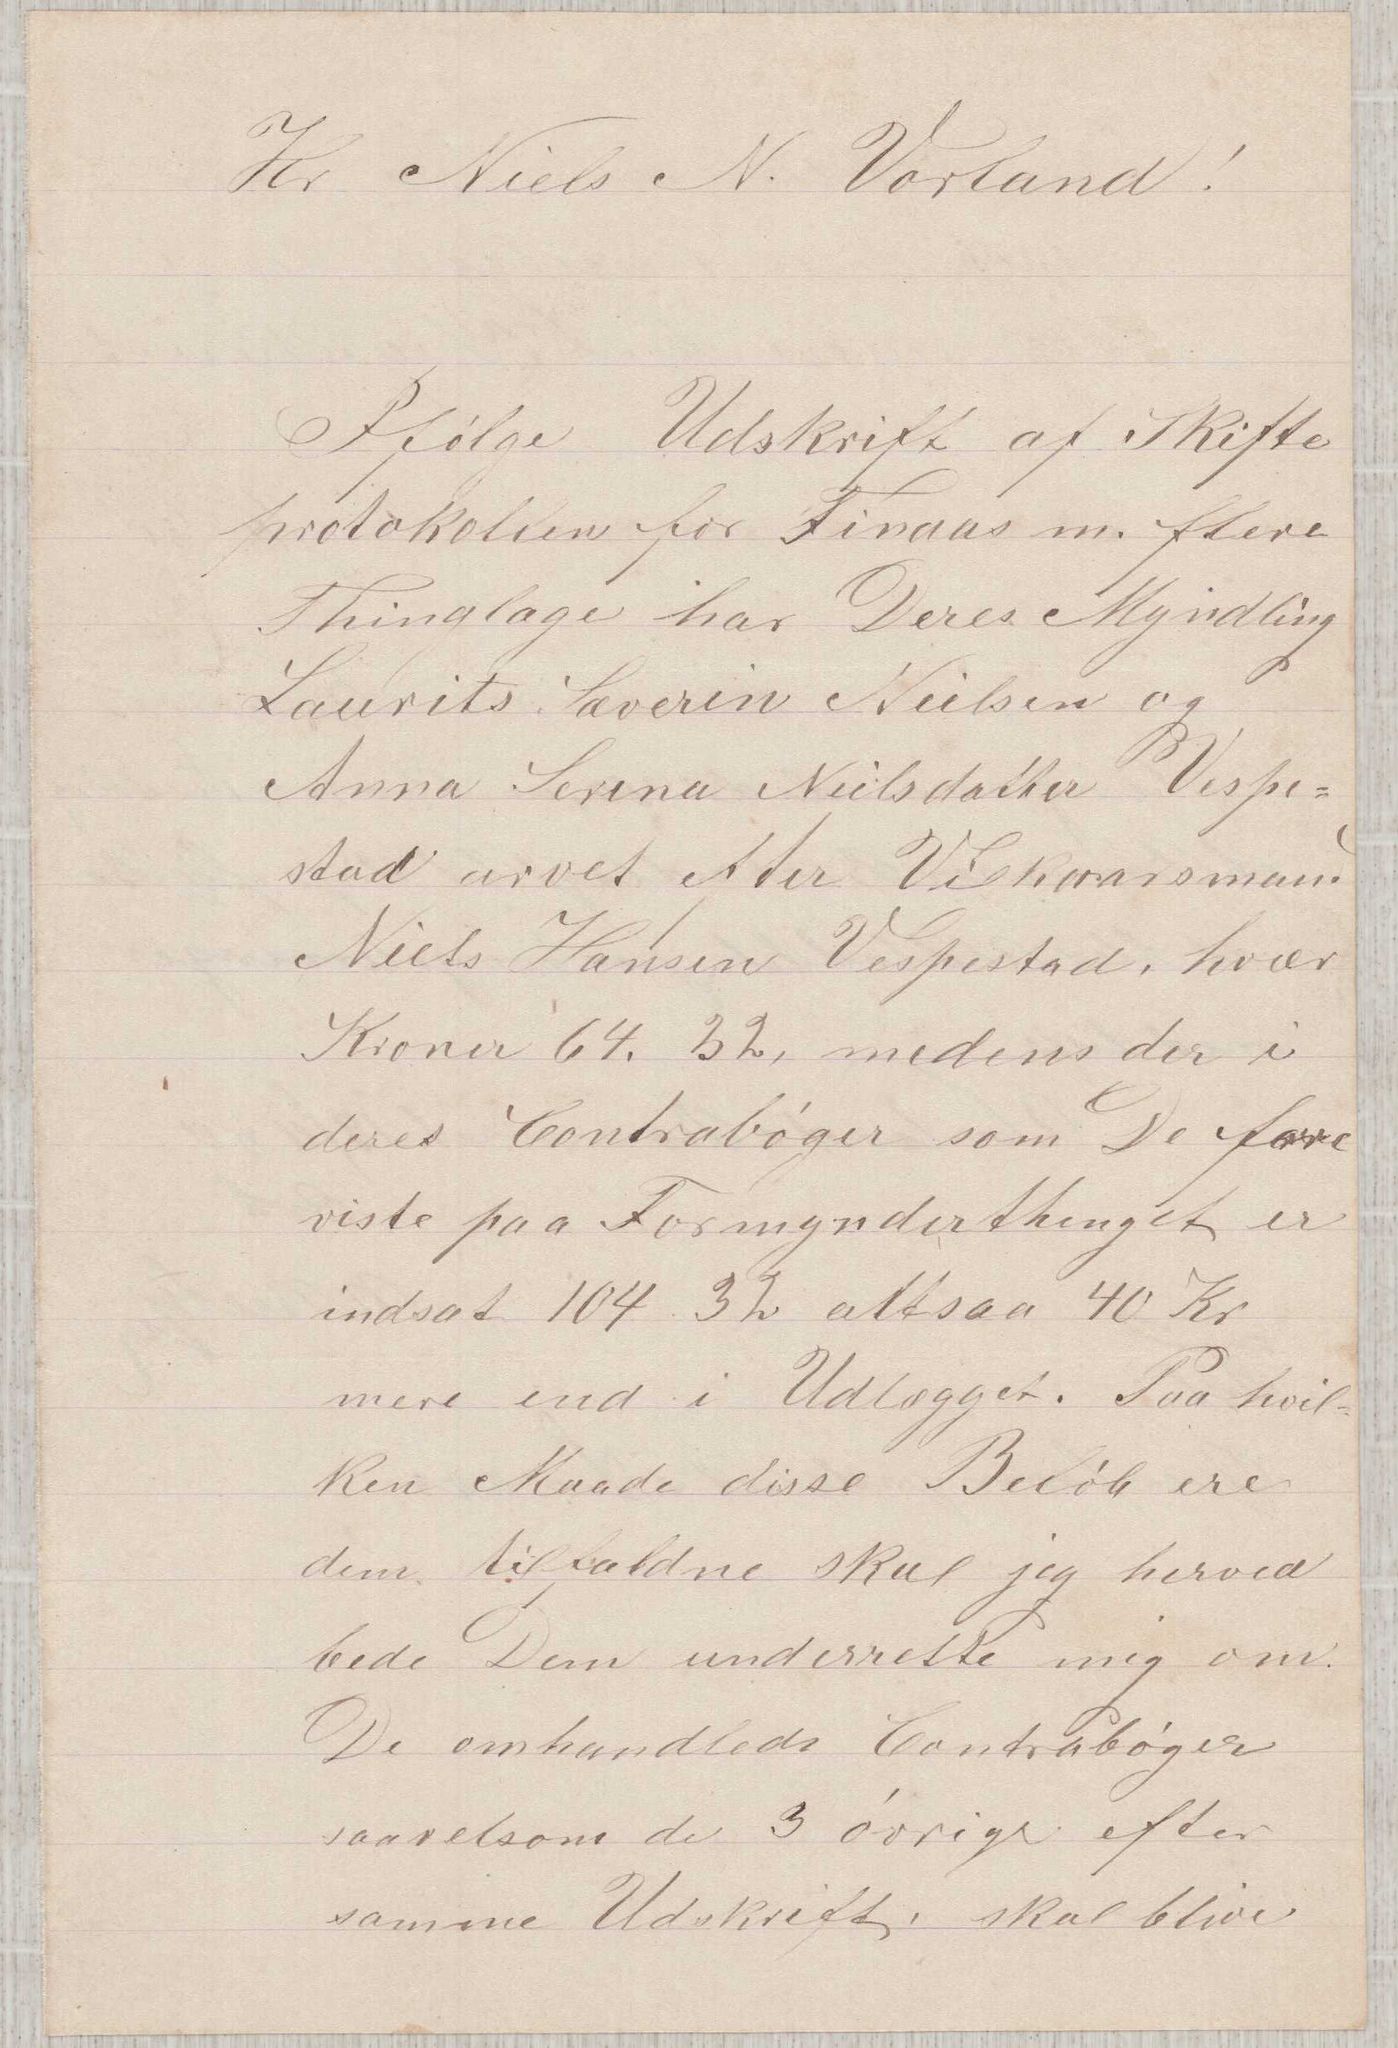 Hr Niels N. Vorland!
Ifølge Udskrift af Skifte
protokollen for Finaas m. flere
Thinglage har Deres Myndling
Laurits Severin Nielsen og
Anna Serina Neilsdatter Vespe=
stad arvet efter Vilkaarsmand
Niels Hansen Vespestad, hvær
Kroner 64. 32, medens der i
deres Contrabøger som De fore
viste paa Formynderthinget er
indsat 104 32 altsaa 40 Kr
mere end i Udlægget. Paa hvil=
ken Maade disse Beløb ere
dem tilfaldne skal jeg herved
bede Dem underrette mig om.
De omhandlede Contrabøger
saavelsom de 3 øvrige efter
samme Udskrift, skal blive